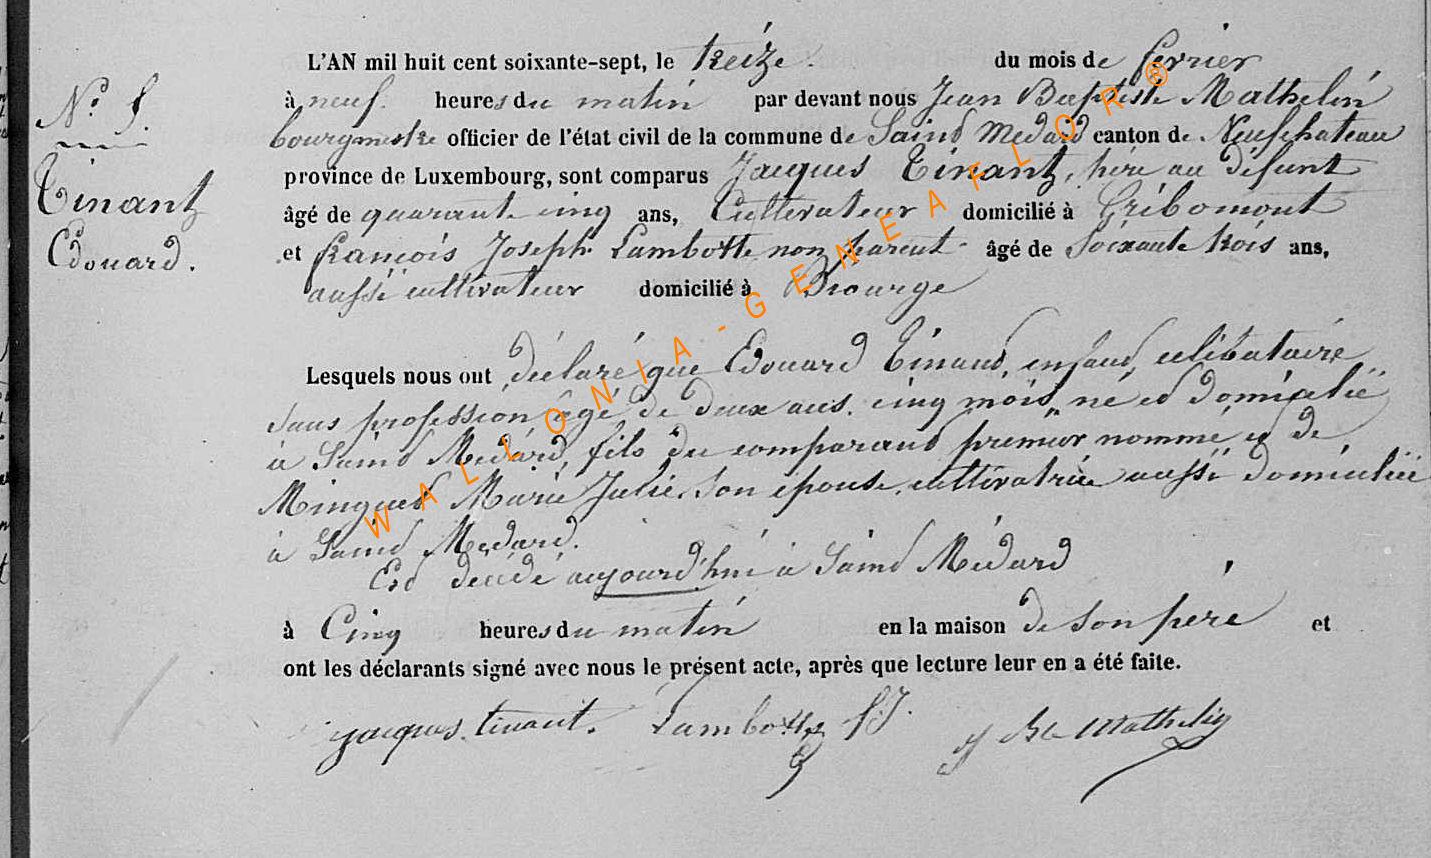 N° 5.
Tinant
Edouard.
L'AN mil huit cent soixante-sept, le treize du mois de février
à neuf heures du matin par devant nous Jean Baptiste Mathelin
bourgmestre officier de l'état civil de la commune de Saint Médard canton de Neufchateau
province de Luxembourg, sont comparus Jacques Tinant, père au défunt
âgé de quarante cinq ans, Cultivateur domicilié à Gribomont
et François Joseph Lambotte non parent âgé de soixante trois ans,
aussi cultivateur domicilié à Biourge
Lesquels nous ont déclaré que Edouard Tinant, enfant, celibataire
sans profession âgé de deux ans cinq mois, né et domicilié
à Saint Médard, fils du comparant premier nommé et de
Marie Julie, son épouse, cultivatrice aussi domiciliée
à Saint Médard.
Est decédé aujourd'hui à Saint Médard
à Cinq heures du matin en la maison de son père et
ont les déclarants signé avec nous le présent acte, après que lecture leur en a été faite.
jacques tinant. Lambotte f. J. J Bte Mathelin
WALLONIA-GENEAFLOR®